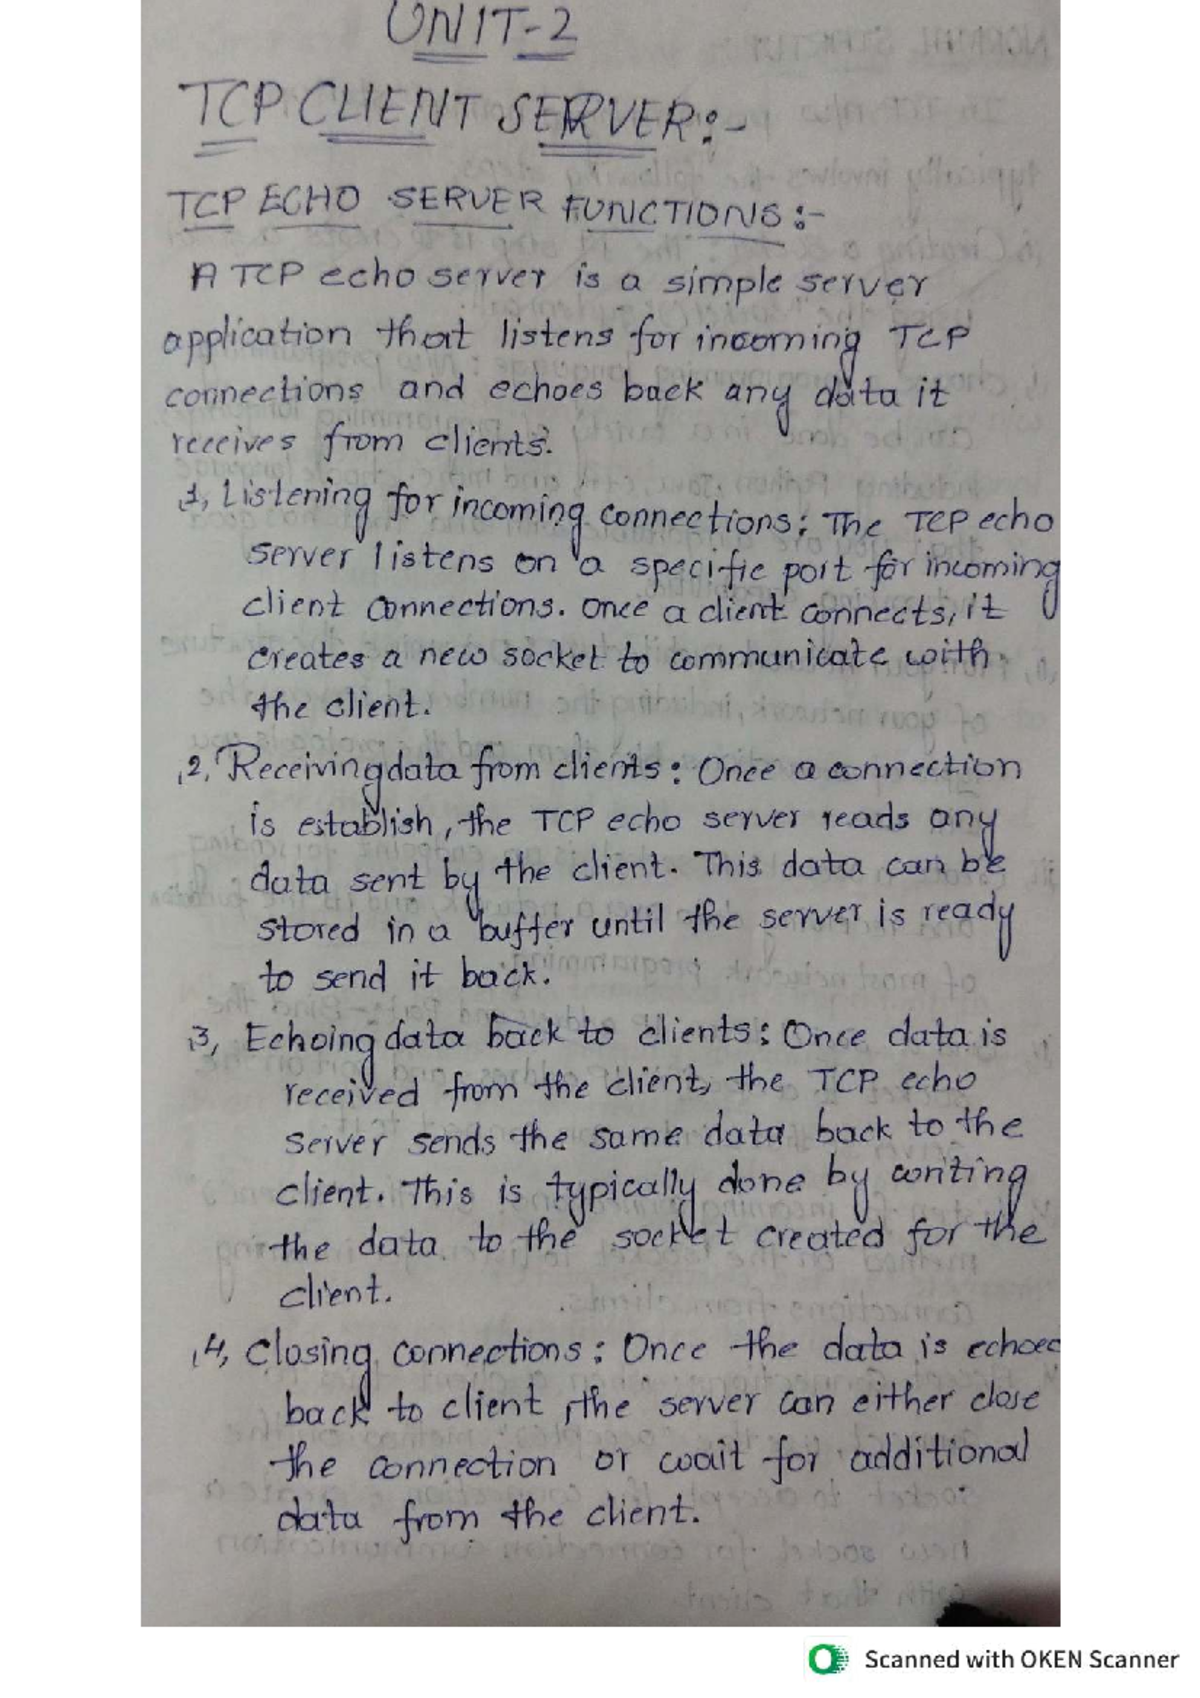 UNIT-2
TCP CLIENT SERVER:-
TCP ECHO SERVER FUNCTIONS:-
A TCP echo server is a simple server
application that listens for incoming TCP
connections and echoes back any data it
receives from clients.
1, Listening for incoming connections: The TCP echo
server listens on a specific port for incoming
client connections. once a client connects, it
creates a new socket to communicate with
the client.
2, Receiving data from clients: Once a connection
is establish, the TCP echo server reads any
data sent by the client. This data can be
stored in a buffer until the server is ready
to send it back.
3, Echoing data back to clients: Once data is
received from the client, the TCP echo
server sends the same data back to the
client. This is typically done by writing
the data to the socket created for the
client.
4, Closing connections: Once the data is echoed
back to client, the server can either close
the connection or wait for additional
data from the client.
Scanned with OKEN Scanner